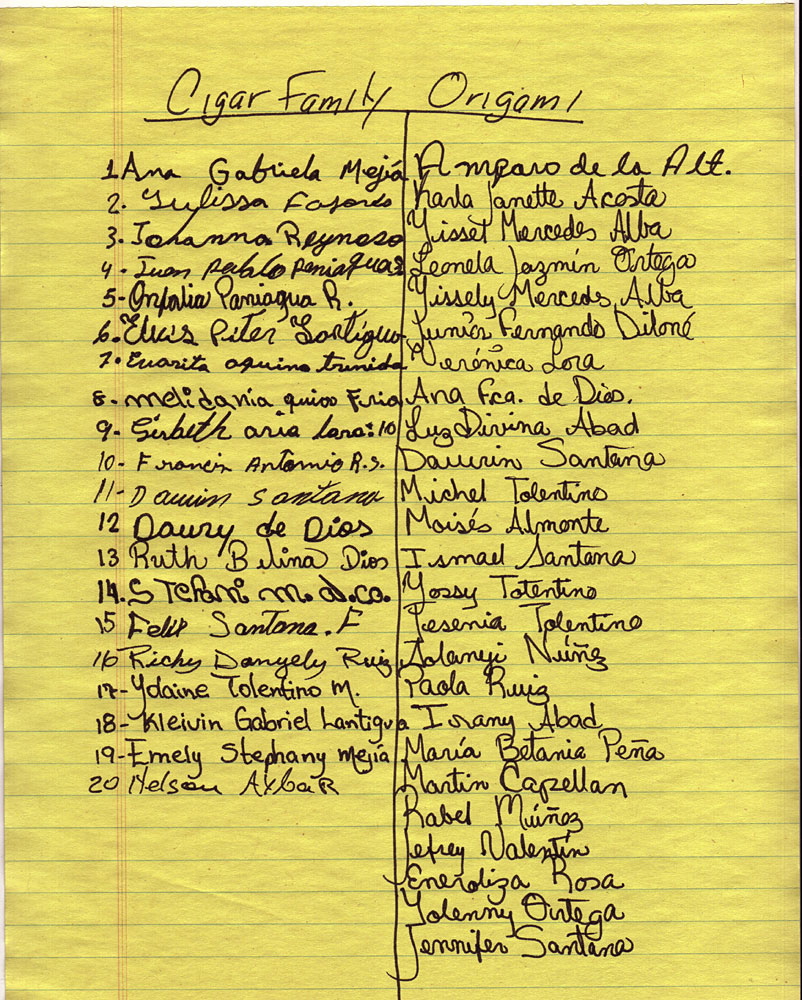 Cigar Family Origami
1 Ana Gabriela Mejía
2. Yulissa Fajardo
3. Johanna Reynoso
4 - Juan Pablo Paniaguas
5 - Onfalia Paniagua R.
6. Elvis Piter
7. aquino
8 - melidania
9 - aria
10 - Francis Antonio R.S.
11 - Dauin Santana
12 Daury de Dios
13 Ruth Belina Dios
14. STEPANi m. d.co.
15 Felix Santana. F
16 Richy Danyely Ruiz
17 - Ydaine Tolentino M.
18 - Kleivin Gabriel Lantigua
19 - Emely Stephany mejía
20 Nelson AybaR
Amparo de la Alt.
Karla Janette Acosta
Yisset Mercedes Alba
Leonela Jazmín Ortega
Yissely Mercedes Alba
Junior Fernando Diloné
Verónica Lora
Ana Fca. de Dios.
Luz Divina Abad
Daurin Santana
Michel Tolentino
Moisés Almonte
Ismael Santana
Yossy Totentino
Yesenia Tolentino
Solanyi Núñez
Paola Ruiz
Irany Abad
María Betania Peña
Martin Capellan
Rabel Múñoz
Jefrey Valentín
Eneroliza Rosa
Yolenny Ortega
Jennifer Santana